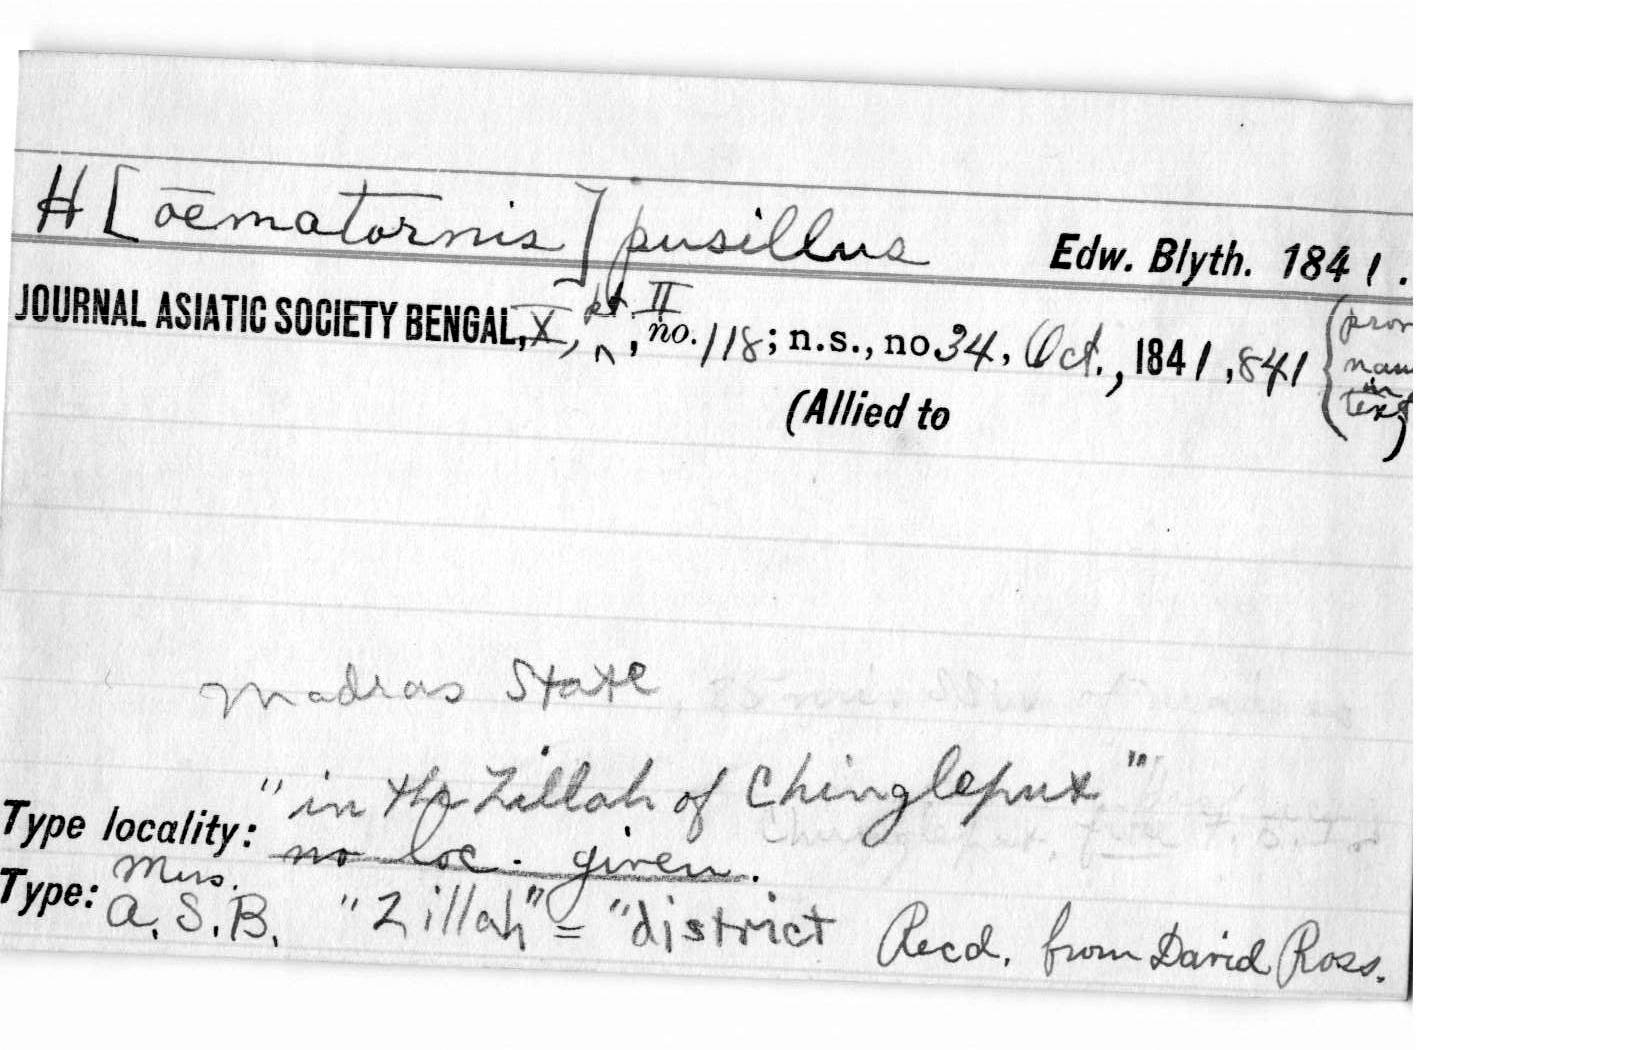 H[œmatornis] pusillus Edw. Blyth. 1841.
JOURNAL ASIATIC SOCIETY BENGAL, X, pt. II, no. 118; n.s., no 34, Oct., 1841, 841 (prov
nam
in
text)
(Allied to
Madras State
"in the Zillah of Chingleput"
Type locality: no loc. given.
Type: Mus. A.S.B. "Zillah" = "district Recd. from David Ross.